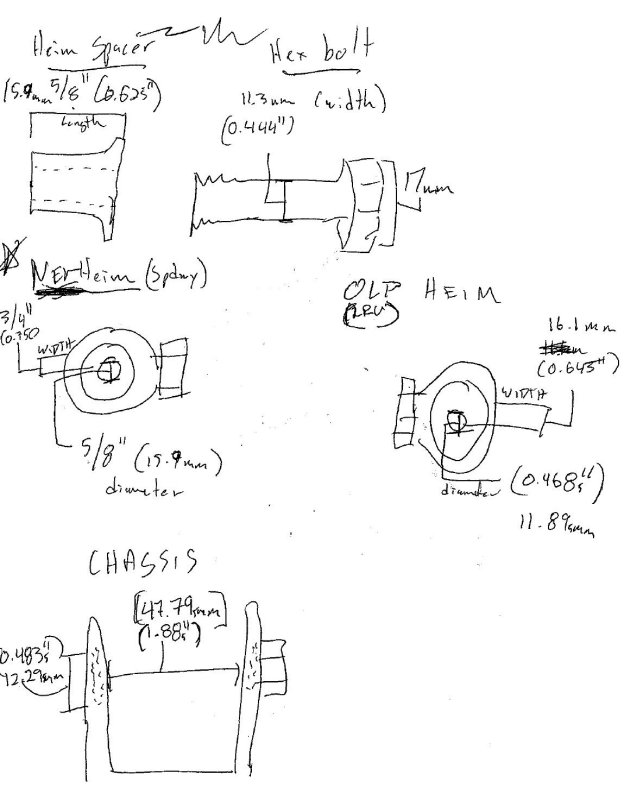 Heim Spacer
15.9mm 5/8" (0.625")
Length
Hex bolt
11.3mm (width)
(0.444")
17mm
Heim (Spdwy)
3/4"
(0.750
WIDTH
5/8" (15.9mm)
diameter
OLD HEIM
16.1mm
(0.643")
WIDTH
diameter (0.4685")
11.895mm
CHASSIS
[47.795mm]
(1.885")
0.4835"
12.295mm